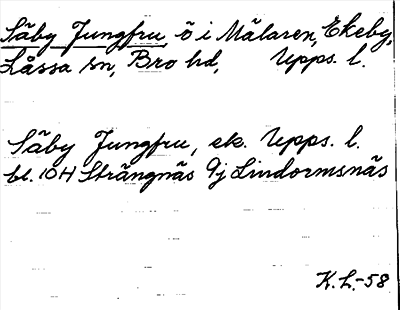 Säby Jungfru, ö i Mälaren, Ekeby,
Låssa sn, Bro hd, Upps. l.
Säby Jungfru, ek. Upps. l.
bl. 10H Strängnäs 9j Lindormsnäs
K.L.-58